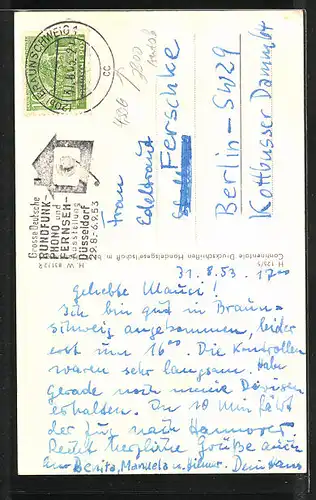 (20b) BRAUNSCHWEIG 1
31.8.53
cc
Grosse Deutsche
RUNDFUNK-
PHONO und
FERNSEH-
Ausstellung
Düsseldorf
29.8.-6.9.53
Frau
Edeltraud
Ferschke
Berlin-SW29
Kottbusser Damm 64
H 125/5 Continentale Druckschriften Handelsgesellschaft m
31.8.53. 17⁰⁰
Geliebte Mauci!
Ich bin gut in Braun-
schweig angekommen, leider
erst um 16⁰⁰. Die Kontrollen
waren sehr langsam. Habe
gerade noch meine Devisen
erhalten. In 10 Min fährt
der Zug nach Hannover.
Recht herzliche Grüße auch
Benita, Manuela u. Dein Hans